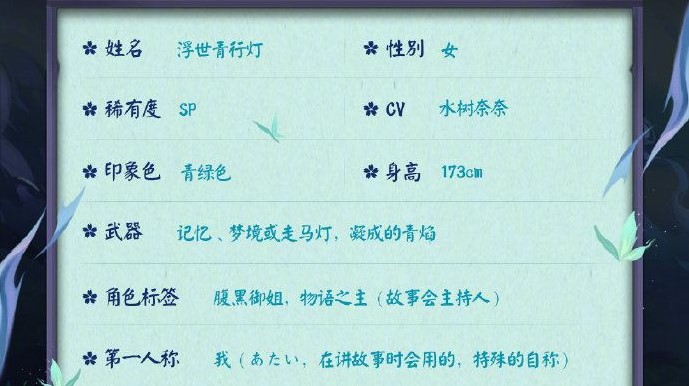 姓名 浮世青行灯 性别 女
稀有度 SP CV 水树奈奈
印象色 青绿色 身高 173cm
武器 记忆、梦境或走马灯，凝成的青焰
角色标签 腹黑御姐，物语之主（故事会主持人）
第一人称 我（あたい，在讲故事时会用的，特殊的自称）